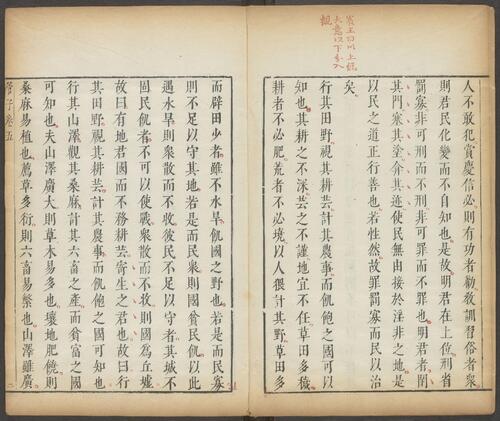 賓王曰以上總
大意以下分八
觀
人不敢犯賞慶信必則有功者勸教訓習俗者衆
則君民化變而不自知也是故明君在上位刑省
罰寡非可刑而不刑非可罪而不罪也明君者閉
其門塞其塗弇其迹使民無由接於淫非之地是
以民之道正行善也若性然故罪罰寡而民以治
矣
行其田野視其耕芸計其農事而飢飽之國可以
知也其耕之不深芸之不謹地宜不任草田多穢
耕者不必肥荒者不必墝以人猥計其野草田多
而辟田少者雖不水旱飢國之野也若是而民寡
則不足以守其地若是而民衆則國貧民飢以此
遇水旱則衆散而不收彼民不足以守者其城不
固民飢者不可以使戰衆散而不收則國爲丘墟
故曰有地君國而不務耕芸寄生之君也故曰行
其田野視其耕芸計其農事而飢飽之國可知也
行其山澤觀其桑麻計其六畜之產而貧富之國
可知也夫山澤廣大則草木易多也壤地肥饒則
桑麻易植也薦草多衍則六畜易繁也山澤雖廣
管子卷五